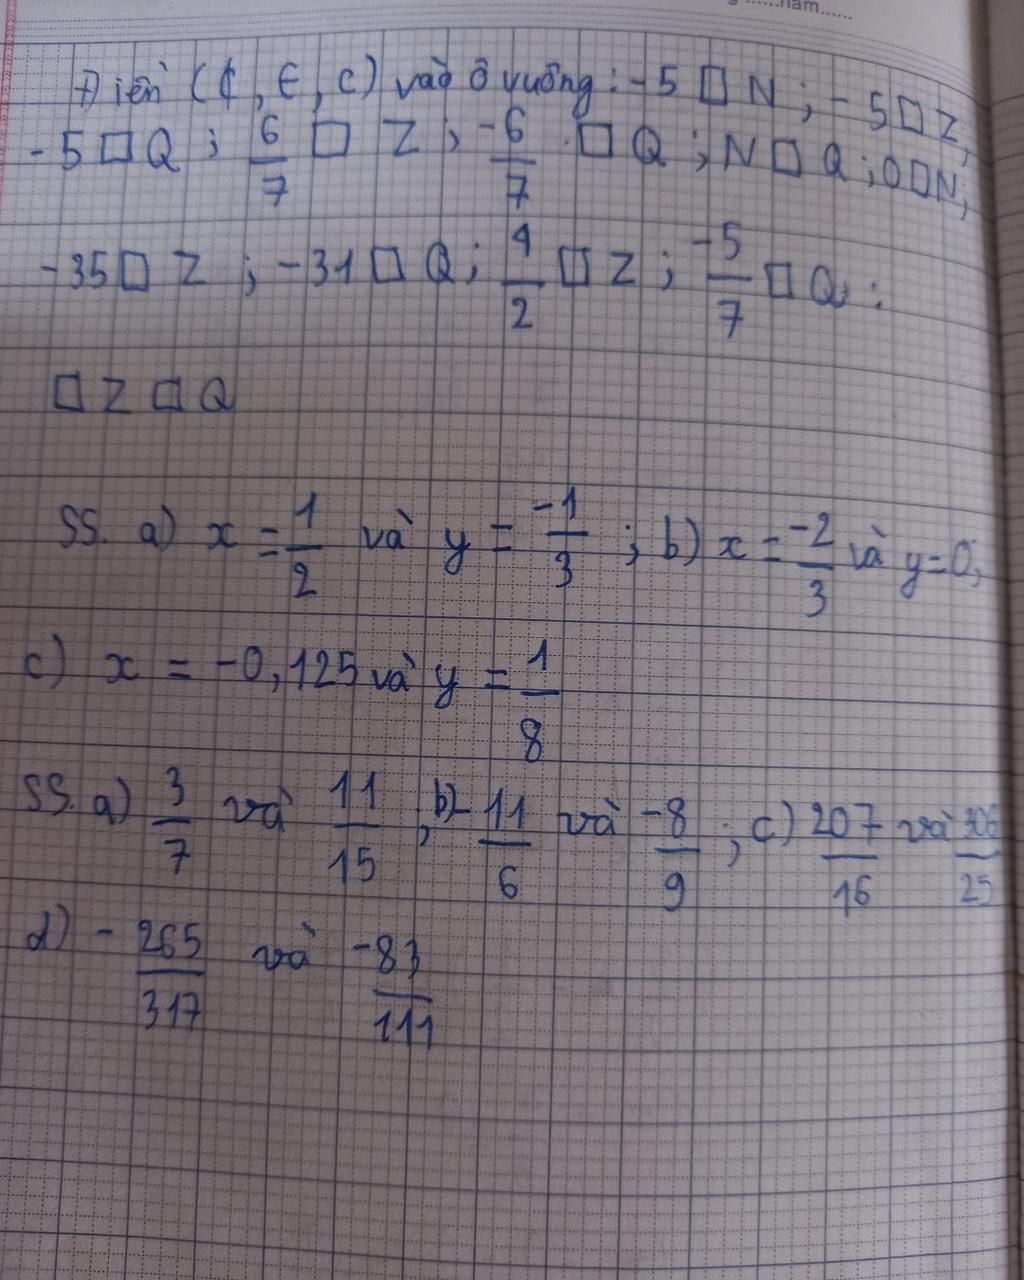 năm......
Điền (∉, ∈, ⊂) vào ô vuông: -5 □ N ; -5 □ Z;
-5 □ Q ; 6/7 □ Z ; -6/7 □ Q ; N □ Q ; 0 □ N;
-35 □ Z ; -31 □ Q ; 4/2 □ Z ; -5/7 □ Q :
□ Z □ Q
SS. a) x = 1/2 và y = -1/3 ; b) x = -2/3 và y = 0;
c) x = -0,125 và y = 1/8
SS. a) 3/7 và 11/15 ; b) -11/6 và -8/9 ; c) 207/16 và 306/25
d) - 265/317 và -83/111